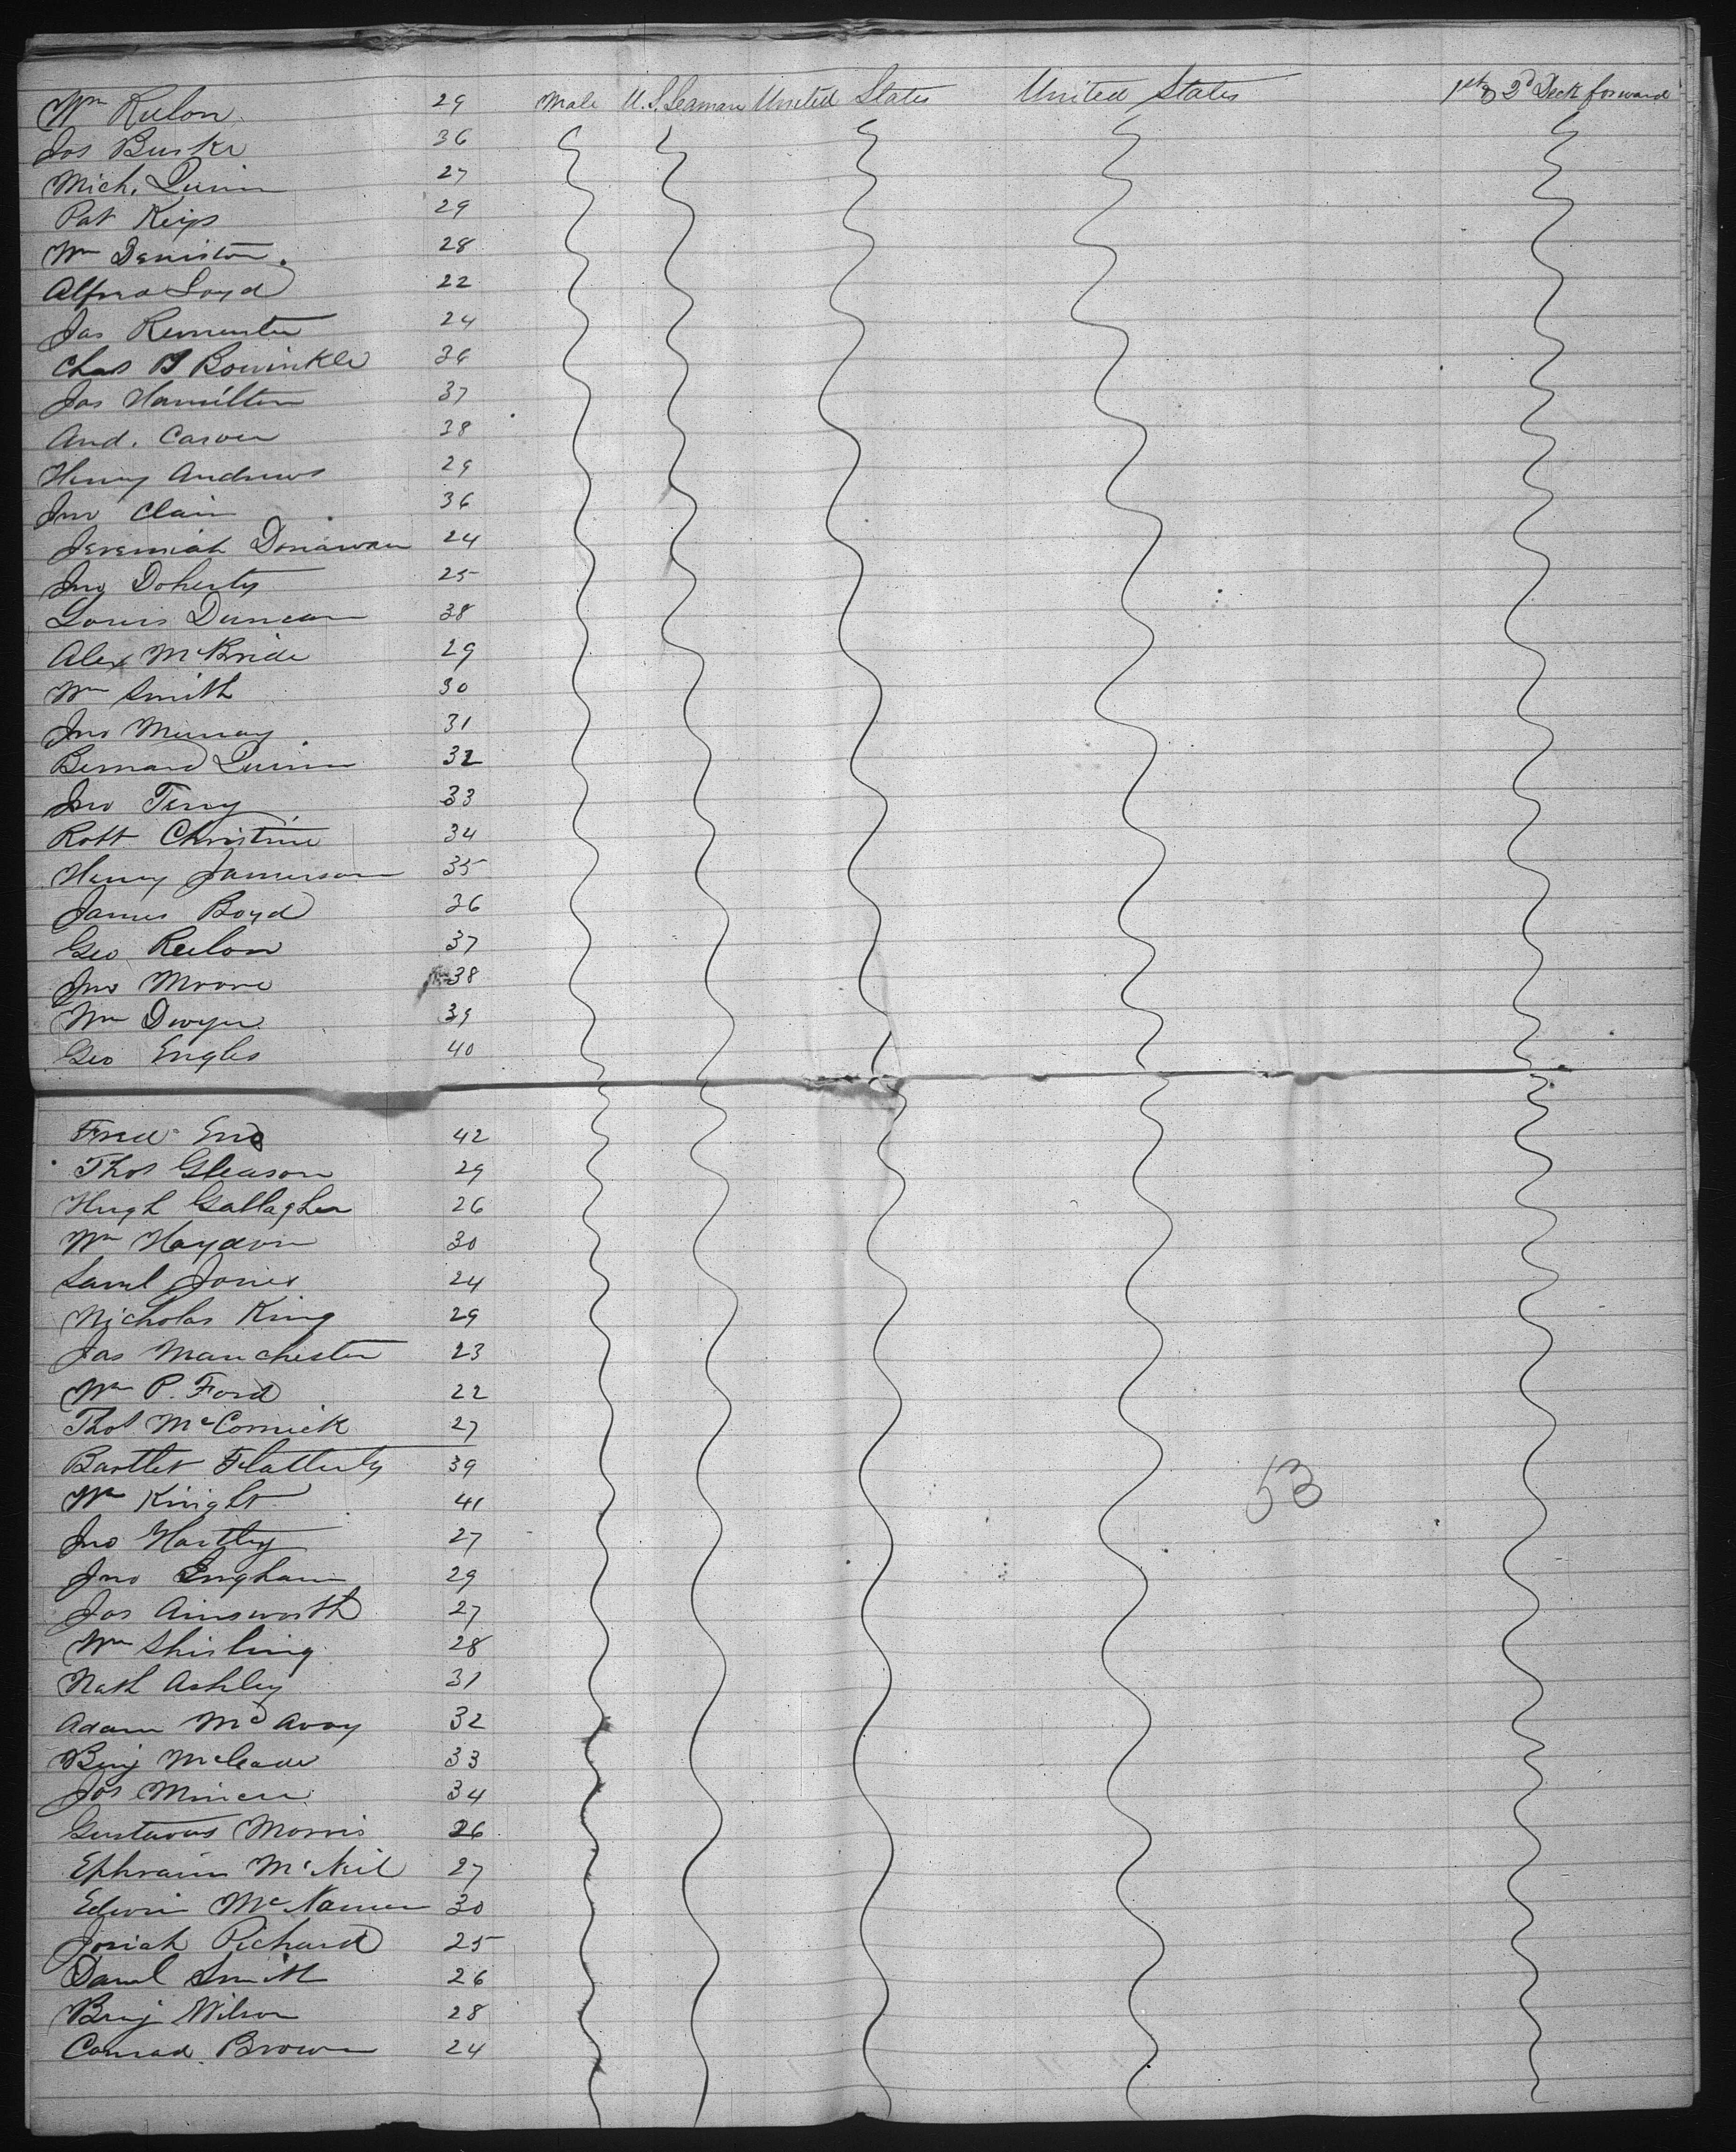 Wm Rulon 29 Male U.S. Seaman United States United States 1st & 2d Deck forward
Jos Burke 36
Mich. Quinn 27
Pat Keips 29
Wm Deniston. 28
Alfred Loyd 22
Jas Rementer 24
Chas B Bowinkle 36
Jas Hamilton 37
And. Carven 38
Henry Andrews 29
Jno Clain 36
Jeremiah Donawan 24
Jno Doherty 25
Louis Duncan 38
Alex McBride 29
Wm Smith 30
Jno Murray 31
Bernard Quinn 32
Jno Terry 33
Robt Christine 34
Henry Jamerson 35
James Boyd 36
Geo Rulon 37
Jno Moore 38
Wm Dwyer 39
Geo Engles 40
Fred Eno 42
Thos Gleason 29
Hugh Gallagher 26
Wm Haydon 30
Saml Jones 24
Nicholas King 29
Jas Manchester 23
Wm P. Ford 22
Thos McCormick 27
Bartlet Flatterty 39
Wm Knight 41
Jno Hartley 27
Jno Ingham 29
Jos Ainsworth 27
Wm Shisling 28
Nath Ashley 31
Adam McAvoy 32
Benj McCeade 33
Jos Miner 34
Gustavus Morris 26
Ephraim McNeil 27
Edwin McNamer 30
Josiah Pichard 25
Danl Smith 26
Benj Wilson 28
Conrad Brown 24
53